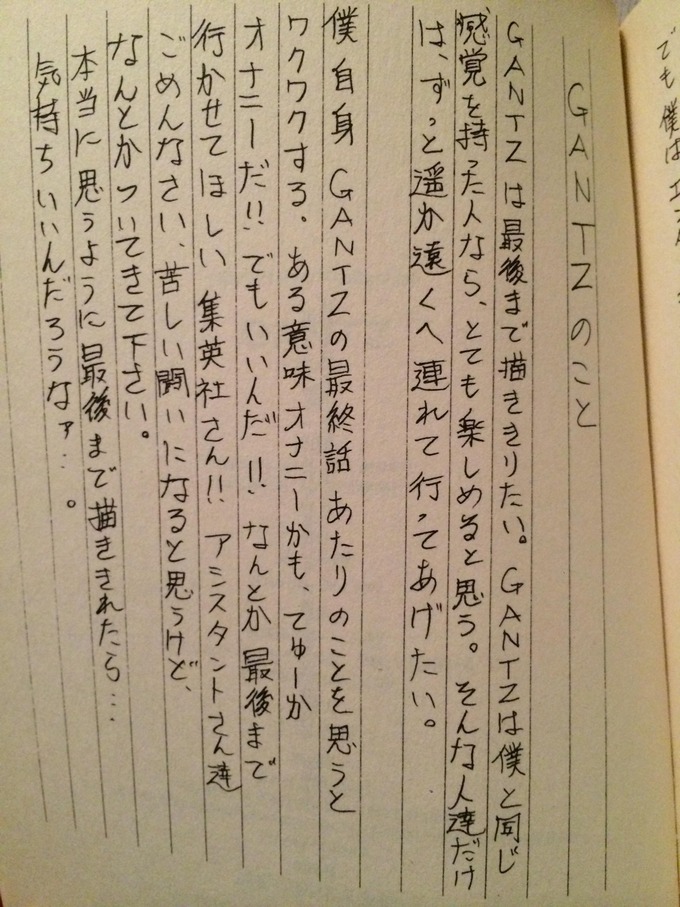 GANTZのこと
GANTZは最後まで描ききりたい。GANTZは僕と同じ
感覚を持った人なら、とても楽しめると思う。そんな人達だけ
は、ずっと遥か遠くへ連れて行ってあげたい。
僕自身GANTZの最終話あたりのことを思うと
ワクワクする。ある意味オナニーかも、てゆーか
オナニーだ!!でもいいんだ!!なんとか最後まで
行かせてほしい集英社さん!!アシスタントさん達
ごめんなさい、苦しい闘いになると思うけど、
なんとかついてきて下さい。
本当に思うように最後まで描ききれたら…
気持ちいいんだろうなァ…。
でも僕は